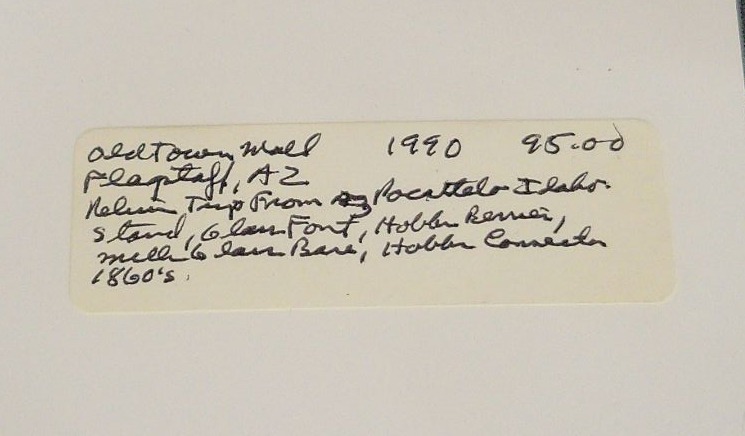 Old Town Mall 1990 95.00
Flagstaff, AZ
Return Trip From Pocatello Idaho.
Stand, Glass Font, Hobbs Burner,
Milk Glass Base, Hobbs Connector
1860's.